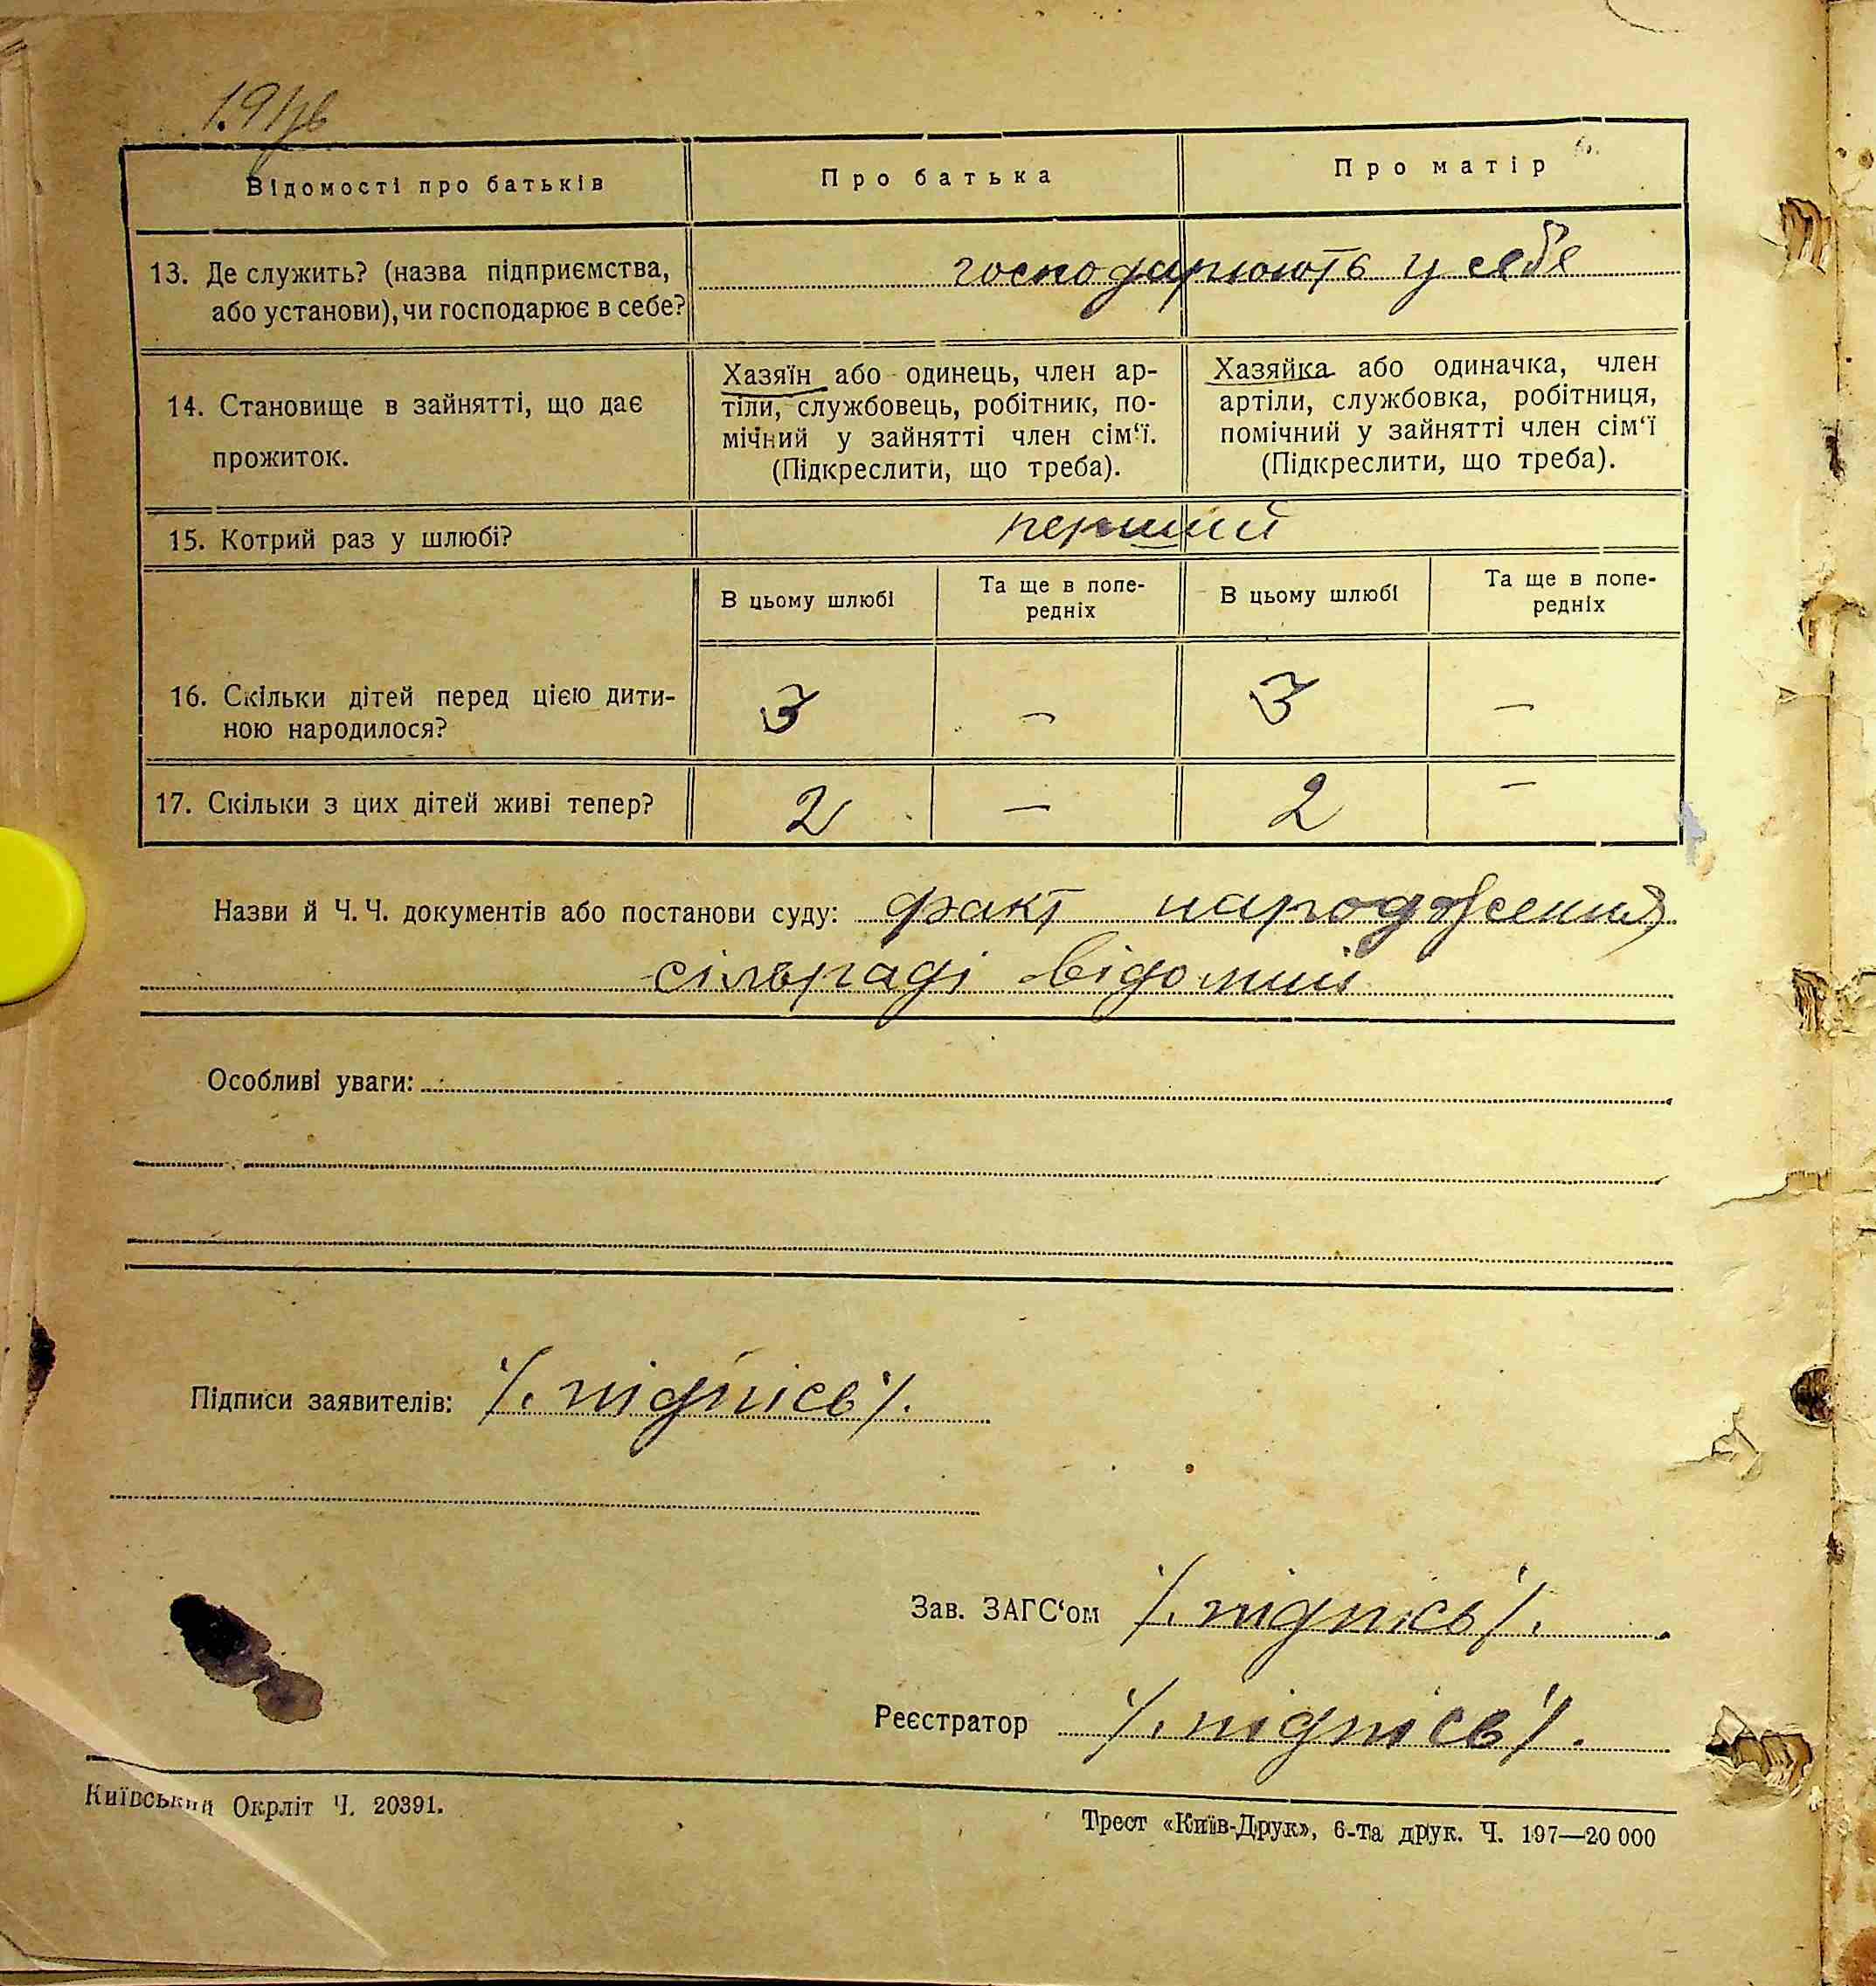 Відомості про батьків
Про батька
Про матір
13. Де служить? (назва підприємства,
або установи), чи господарює в себе?
господарюють у себе
14. Становище в зайнятті, що дає
прожиток.
Хазяїн або одинець, член ар-
тіли, службовець, робітник, по-
мічний у зайнятті член сім‘ї.
(Підкреслити, що треба).
Хазяйка або одиначка, член
артіли, службовка, робітниця,
помічний у зайнятті член сім‘ї
(Підкреслити, що треба).
15. Котрий раз у шлюбі?
перший
В цьому шлюбі
Та ще в попе-
редніх
В цьому шлюбі
Та ще в попе-
редніх
16. Скільки дітей перед цією дити-
ною народилося?
3 — 3 —
17. Скільки з цих дітей живі тепер?
2 — 2 —
Назви й Ч. Ч. документів або постанови суду: факт народження
сільраді відомий
Особливі уваги:
Підписи заявителів: /. підпісь /.
Зав. ЗАГС‘ом /. підпісь /.
Реєстратор /. підпісь /.
Київський Окрліт Ч. 20391.
Трест «Київ-Друк», 6-та друк. Ч. 197—20 000